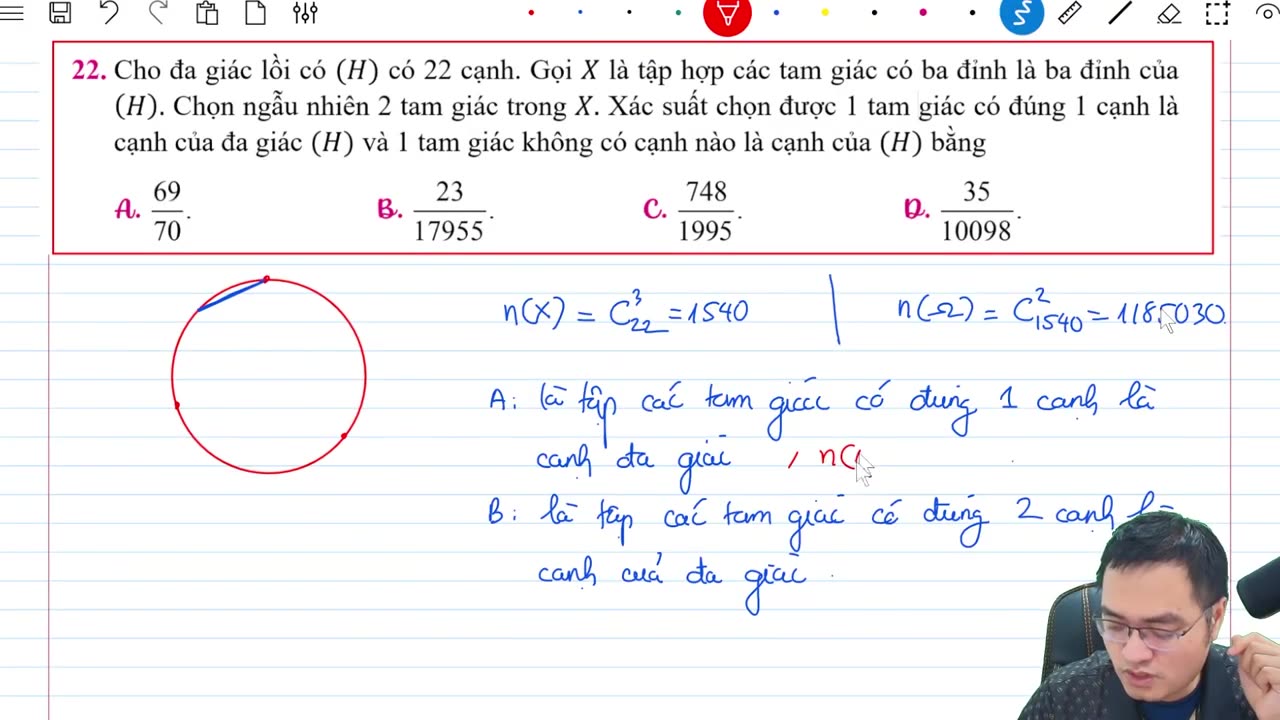 22. Cho đa giác lồi có (H) có 22 cạnh. Gọi X là tập hợp các tam giác có ba đỉnh là ba đỉnh của
(H). Chọn ngẫu nhiên 2 tam giác trong X. Xác suất chọn được 1 tam giác có đúng 1 cạnh là
cạnh của đa giác (H) và 1 tam giác không có cạnh nào là cạnh của (H) bằng
A. 69/70. B. 23/17955. C. 748/1995. D. 35/10098.
n(X) = C₂₂³ = 1540 | n(Ω) = C₁₅₄₀² = 1185030
A: là tập các tam giác có đúng 1 cạnh là
cạnh đa giác , n(
B: là tập các tam giác có đúng 2 cạnh là
cạnh của đa giác